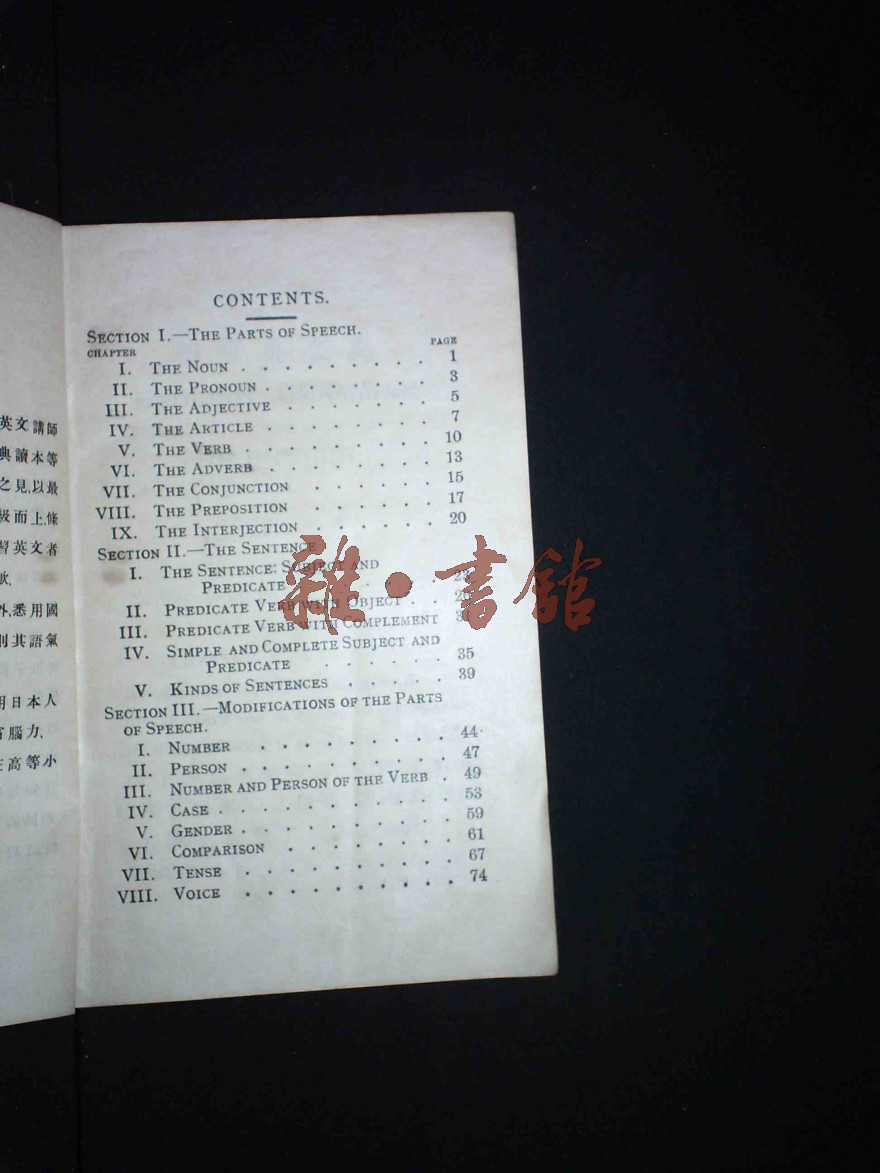 英文講師
典讀本等
之見,以最
級而上,條
習英文者
歟.
外,悉用國
則其語氣
用日本人
腦力,
在高等小
CONTENTS.
SECTION I.—THE PARTS OF SPEECH.
CHAPTER PAGE
I. THE NOUN . . . . . . . . . 1
II. THE PRONOUN . . . . . . . . 3
III. THE ADJECTIVE . . . . . . . 5
IV. THE ARTICLE . . . . . . . . 7
V. THE VERB . . . . . . . . . 10
VI. THE ADVERB . . . . . . . . 13
VII. THE CONJUNCTION . . . . . . 15
VIII. THE PREPOSITION . . . . . . 17
IX. THE INTERJECTION . . . . . . 20
SECTION II.—THE SENTENCE
I. THE SENTENCE: SUBJECT AND
PREDICATE
II. PREDICATE VERB WITH OBJECT . .
III. PREDICATE VERB WITH COMPLEMENT
IV. SIMPLE AND COMPLETE SUBJECT AND
PREDICATE . . . . . . 35
V. KINDS OF SENTENCES . . . . . 39
SECTION III.—MODIFICATIONS OF THE PARTS
OF SPEECH.
I. NUMBER . . . . . . . . . 44
II. PERSON . . . . . . . . . 47
III. NUMBER AND PERSON OF THE VERB . 49
IV. CASE . . . . . . . . . . 53
V. GENDER . . . . . . . . . 59
VI. COMPARISON . . . . . . . . 61
VII. TENSE . . . . . . . . . 67
VIII. VOICE . . . . . . . . . 74
雜·書館